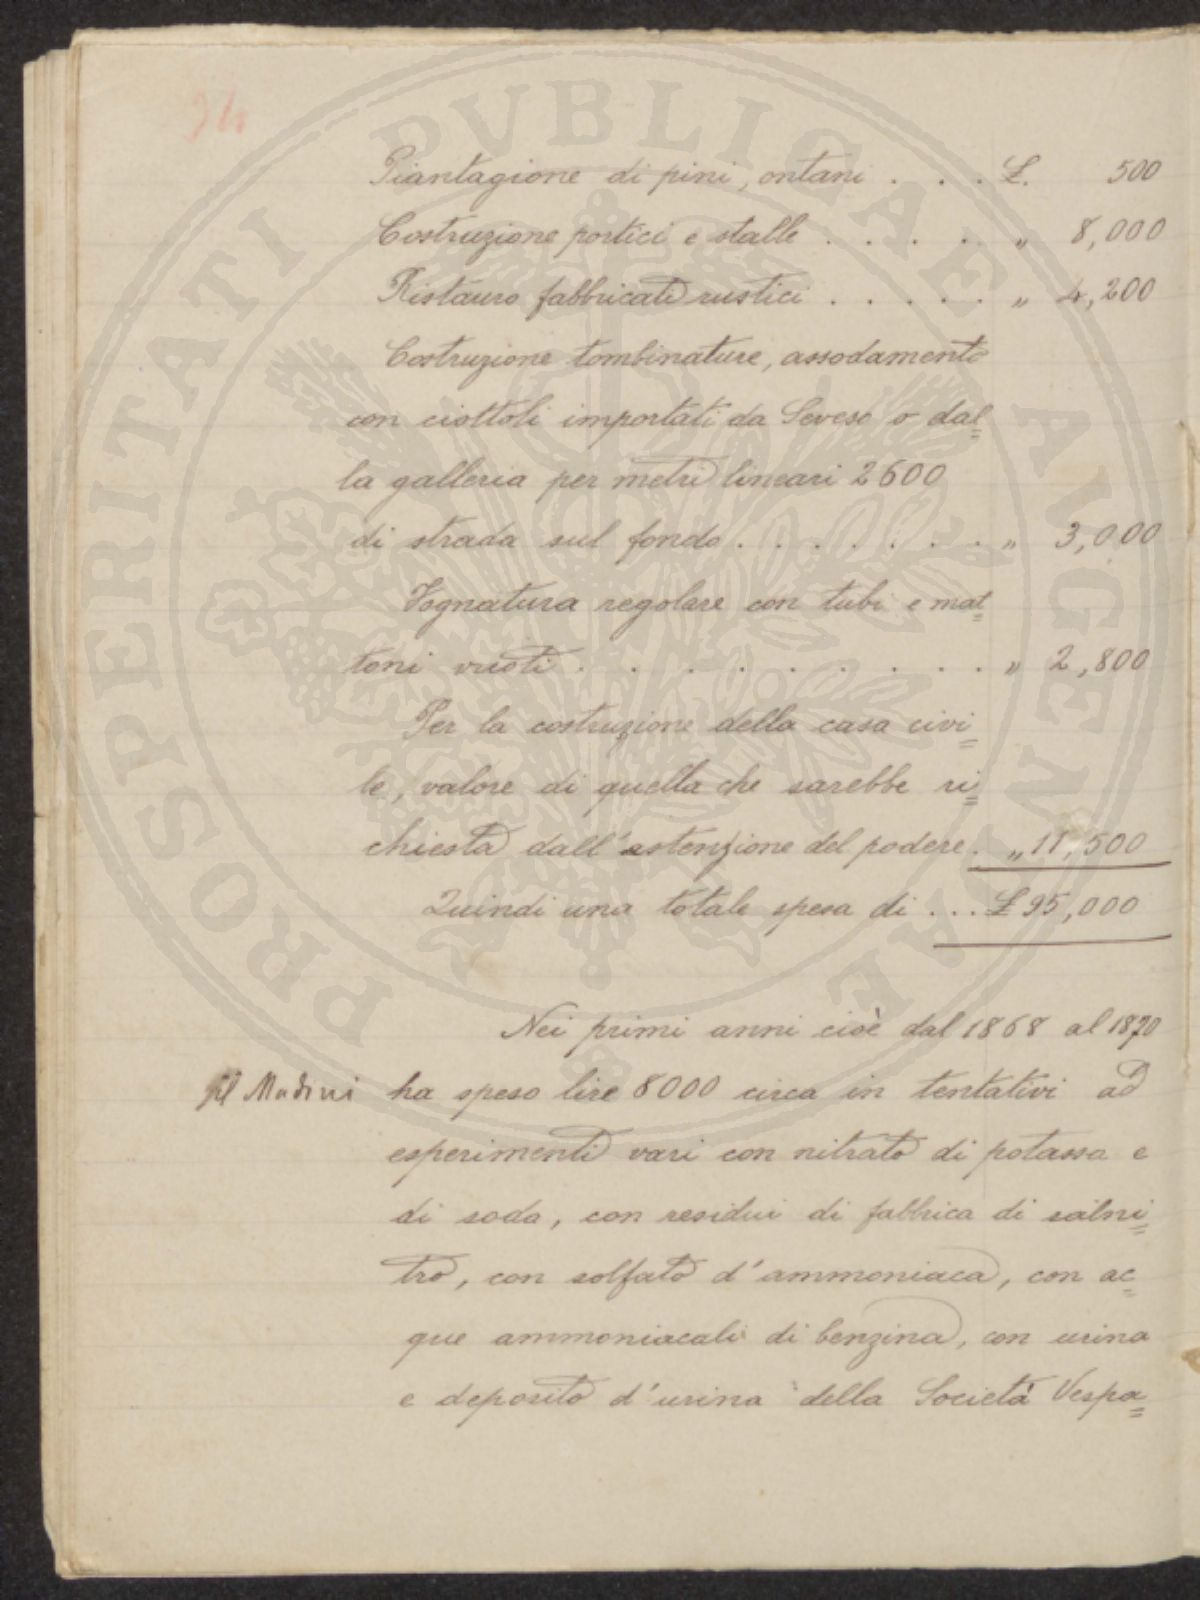 34
Piantagione di pini, ontani . . . £. 500
Costruzione portici e stalle . . . . . „ 8,000
Ristauro fabbricati rustici . . . . . „ 4,200
Costruzione tombinature, assodamento
con ciottoli importati da Seveso o dal=
la galleria per metri lineari 2600
di strada sul fondo . . . . . . . „ 3,000
Fognatura regolare con tubi e mat=
toni vuoti . . . . . . . . „ 2,800
Per la costruzione della casa civi=
le, valore di quella che sarebbe ri=
chiesta dall'estenzione del podere . „ 11,500
Quindi una totale spesa di ... £ 95,000
Nei primi anni cioè dal 1868 al 1870
il Madini ha speso lire 8000 circa in tentativi ad
esperimenti vari con nitrato di potassa e
di soda, con residui di fabbrica di salni=
tro, con solfato d'ammoniaca, con ac=
que ammoniacali di benzina, con urina
e deposito d'urina della Società Vespa=
PROSPERITATI PVBLICAE AVGENDAE